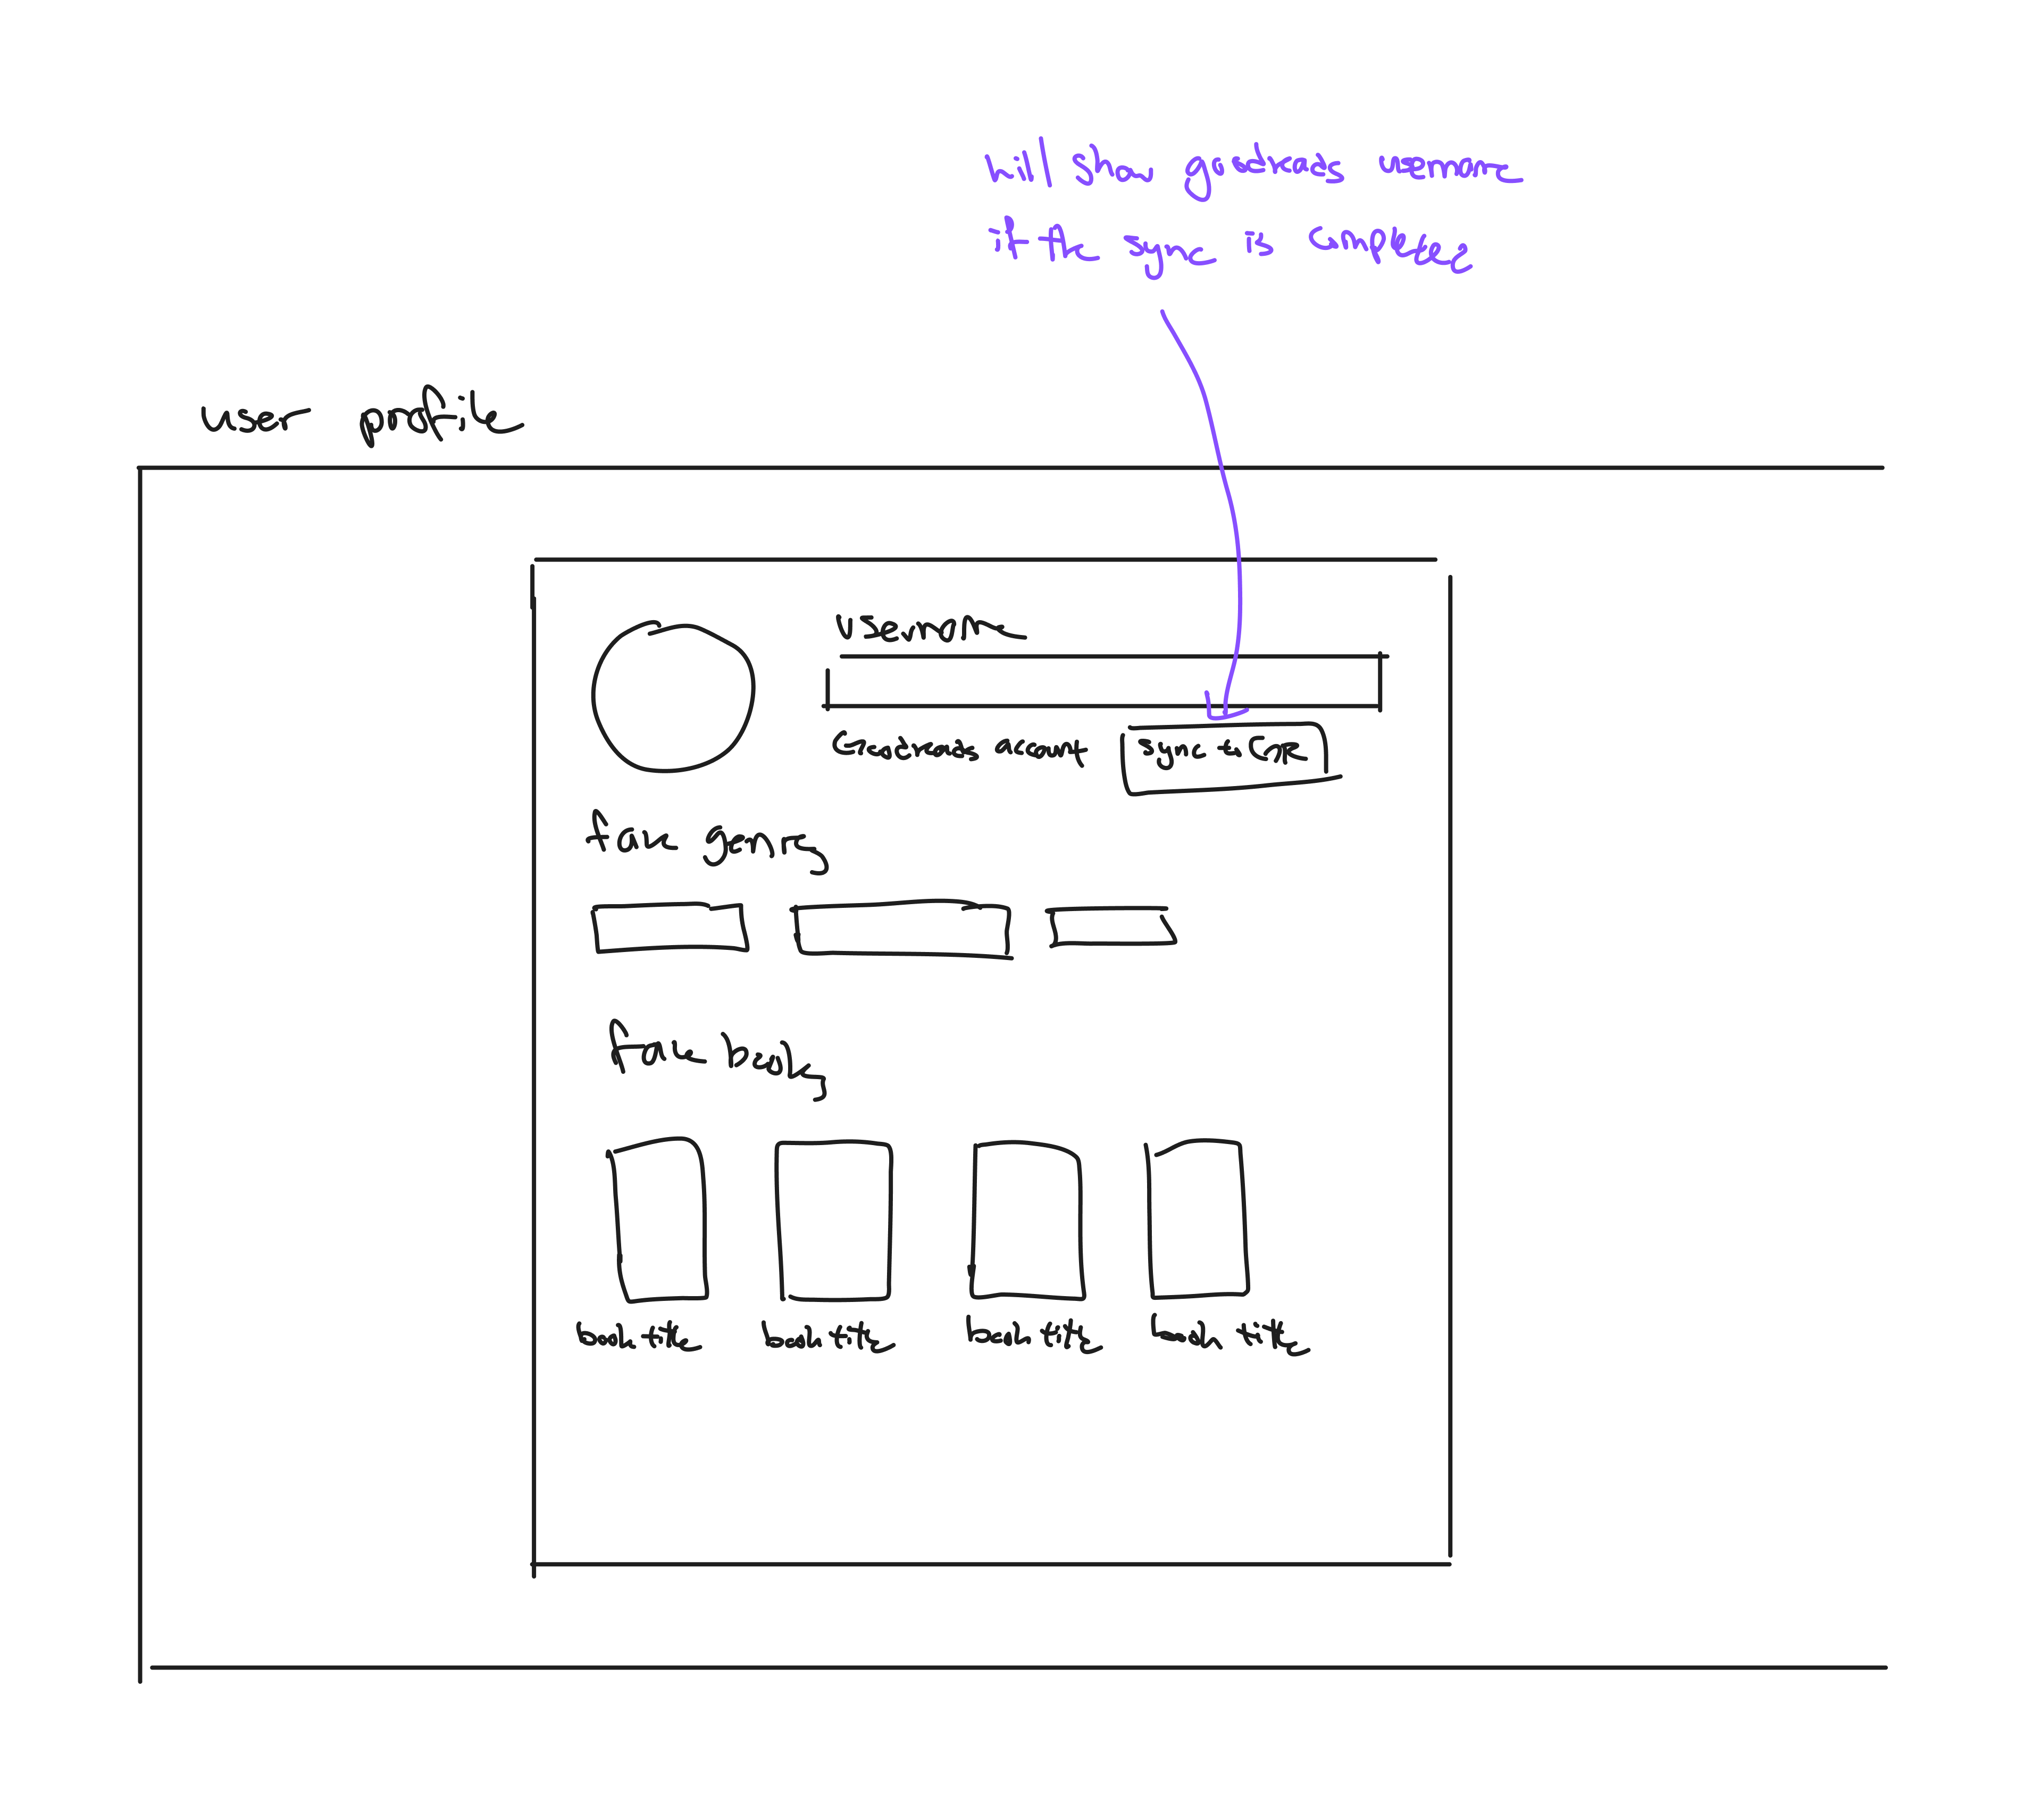 will show goodreads username
if the sync is complete
user profile
username
Goodreads account
sync to GR
fave genres
fave books
book title
book title
book title
book title